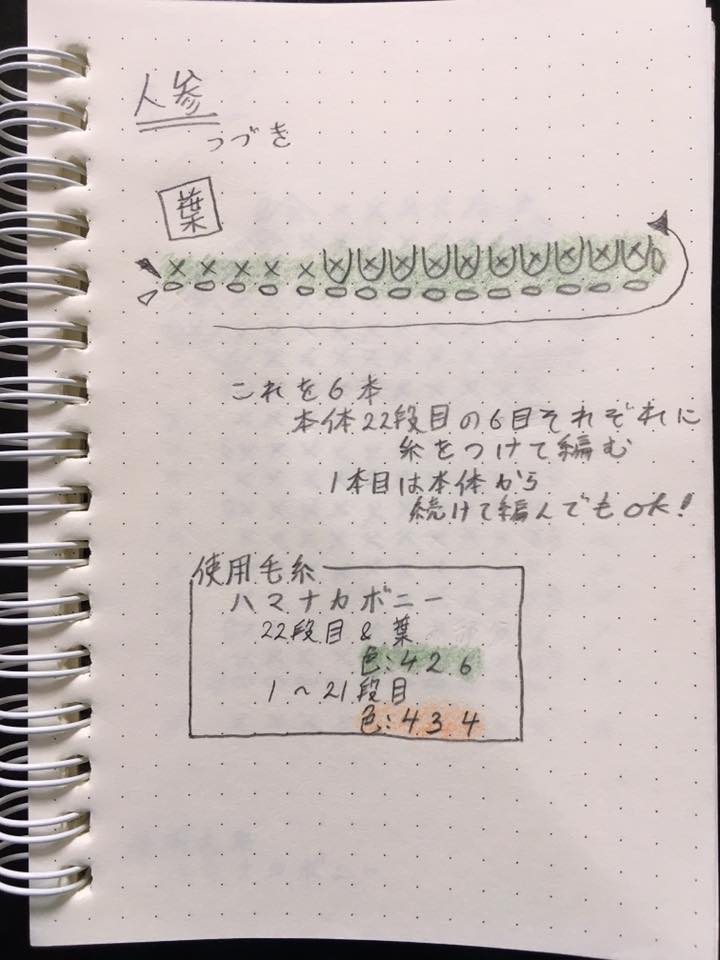 人参
つづき
葉
これを6本
本体22段目の6目それぞれに
糸をつけて編む
1本目は本体から
続けて編んでもOK!
使用毛糸
ハマナカボニー
22段目 & 葉
色:426
1〜21段目
色:434